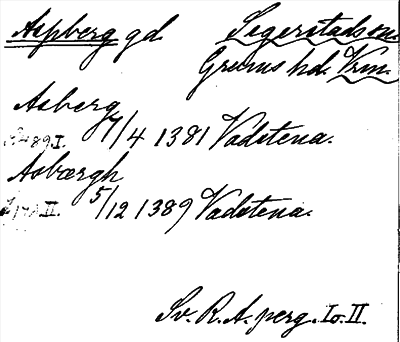 Aspberg gd. Segerstads sn.
Grums hd. Vrm.
Asberg
89 I. 7/4 1381 Vadstena.
Asbærgh
II. 5/12 1389 Vadstena.
Sv. R. A. perg. I o. II.